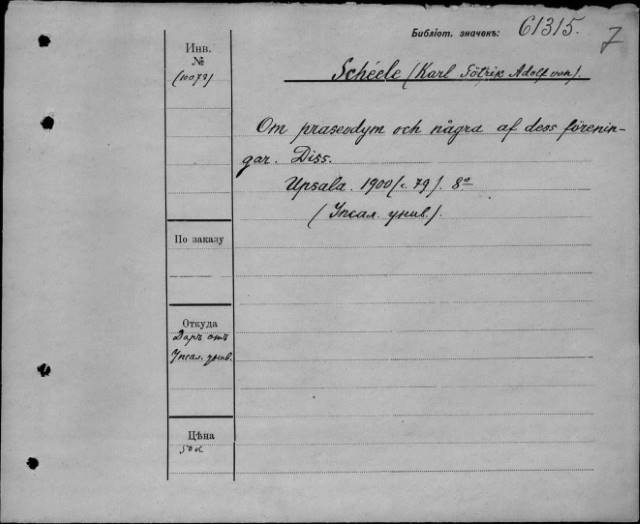 Библіот. значекъ: 61315. 7
Инв.
№
(10079)
Schéele (Karl Götrik Adolf von).
Om praseodym och några af dess förenin-
gar. Diss.
Upsala. 1900 (с. 79). 8º
(Упсал. унив.).
По заказу
Откуда
Даръ отъ
Упсал. унив.
Цѣна
50 к